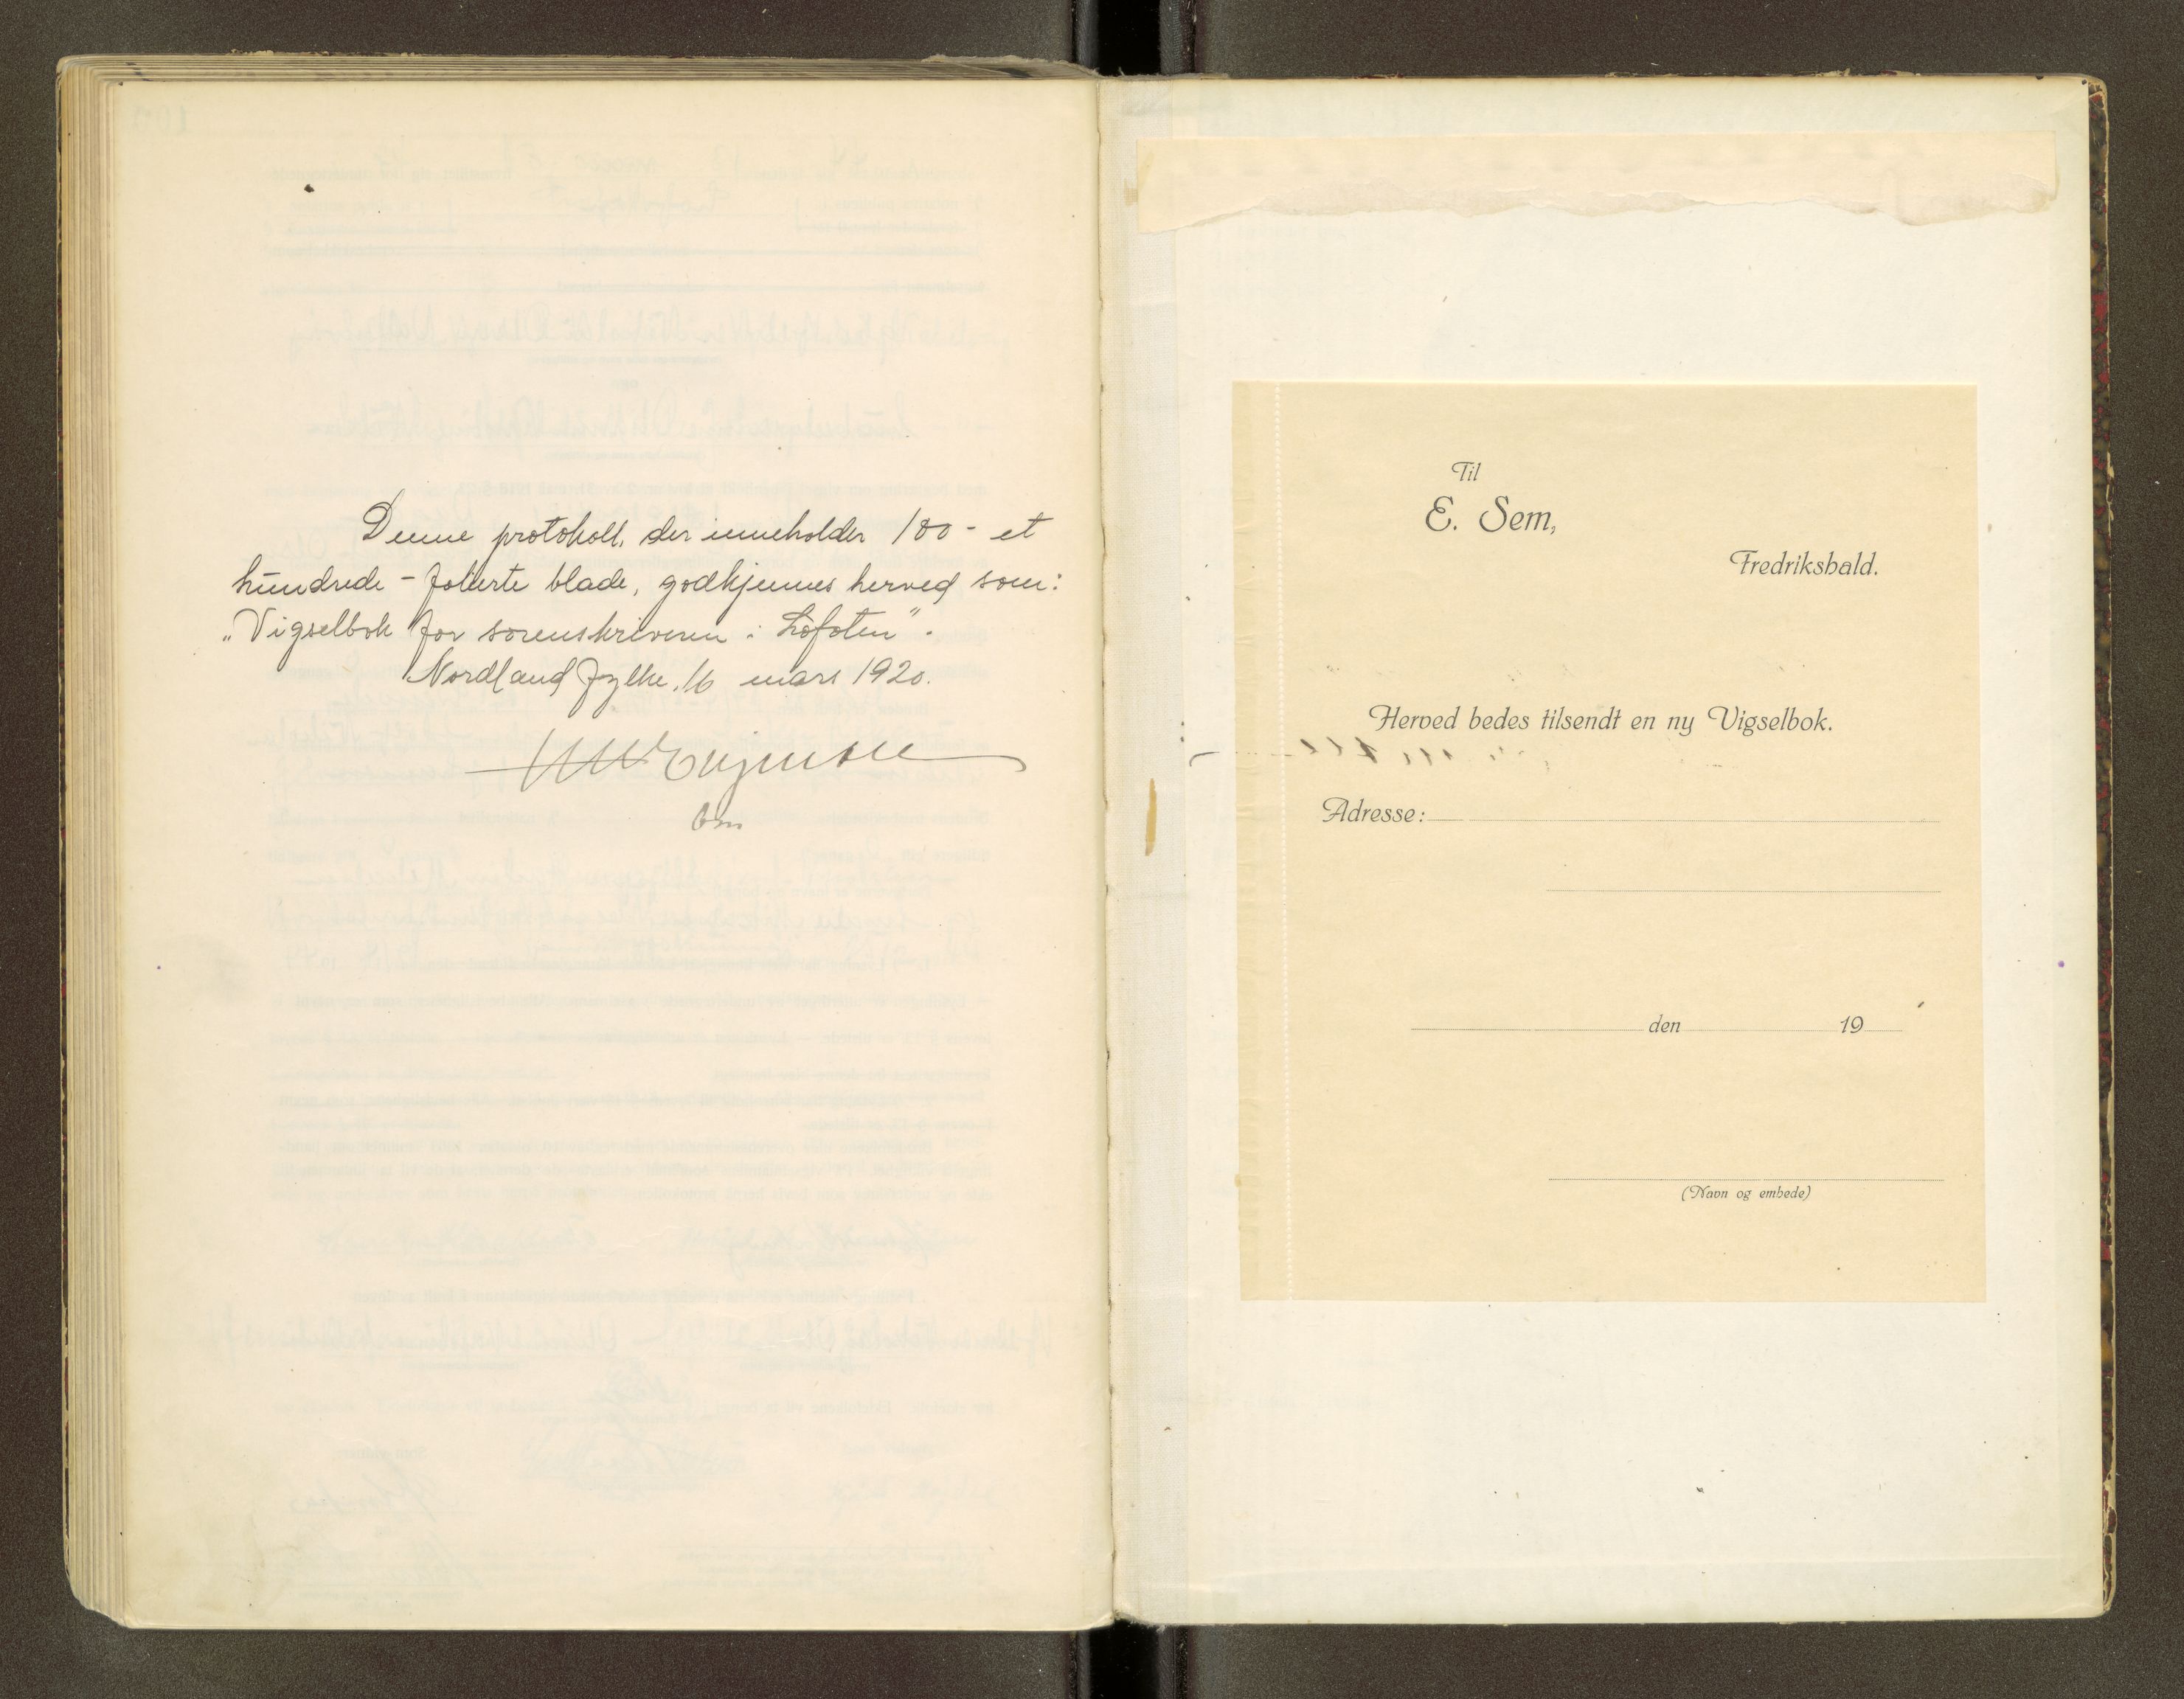 Denne protokoll, der inneholder 100 - et
hundrede - folierte blade, godkjennes herved som:
„Vigselbok for sorenskriveren i Lofoten".
Nordland fylke, 16 mars 1920.
Til
E. Sem,
Fredrikshald.
Herved bedes tilsendt en ny Vigselbok.
Adresse:
den 19
(Navn og embede)